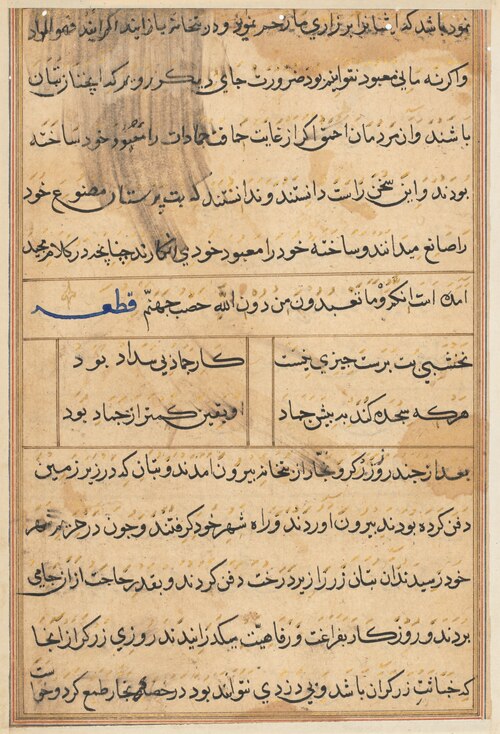 نمود باشد که ایشانرا بر زاری ما رحم نمود و در بتخانه باز ایند اکر ایند فهو المراد
واکرنه ما بی معبود نتوانیم بود ضرورت جای دیکر رویم که اینجا بتان
باشند وان مردمان احمق اکر از غایت حماقت جمادات را معبود خود ساخته
بودند و این سخن راست دانستند و ندانستند که بت پرستان مصنوع خود
را صانع میدانند و ساخته خود را معبود خود می انکارند چنانچه در کلام مجید
امده است انکم وما تعبدون من دون الله حصب جهنم قطعه
نخشبی بت پرست چیزی نیست کار جمادبی سداد بود
هرکه سجده کند به پیش جماد او یقین کمتر از جماد بود
بعد از چند روز زرکر و نجار از بتخانه بیرون امدند و بتان که در زیر زمین
دفن کرده بودند بیرون اوردند و راه شهر خود کرفتند و چون در شهر
خود رسیدند ان بتان زر را زیر درخت دفن کردند و بقدر حاجت ازان جامی
بردند و روز کار بفراغت و رفاهیت میکدرانیدند روزی زرکر از انجا
که خباثت زرکران باشد و بی دزدی نتوانند بود در حصه نجار طمع کرد و خواست